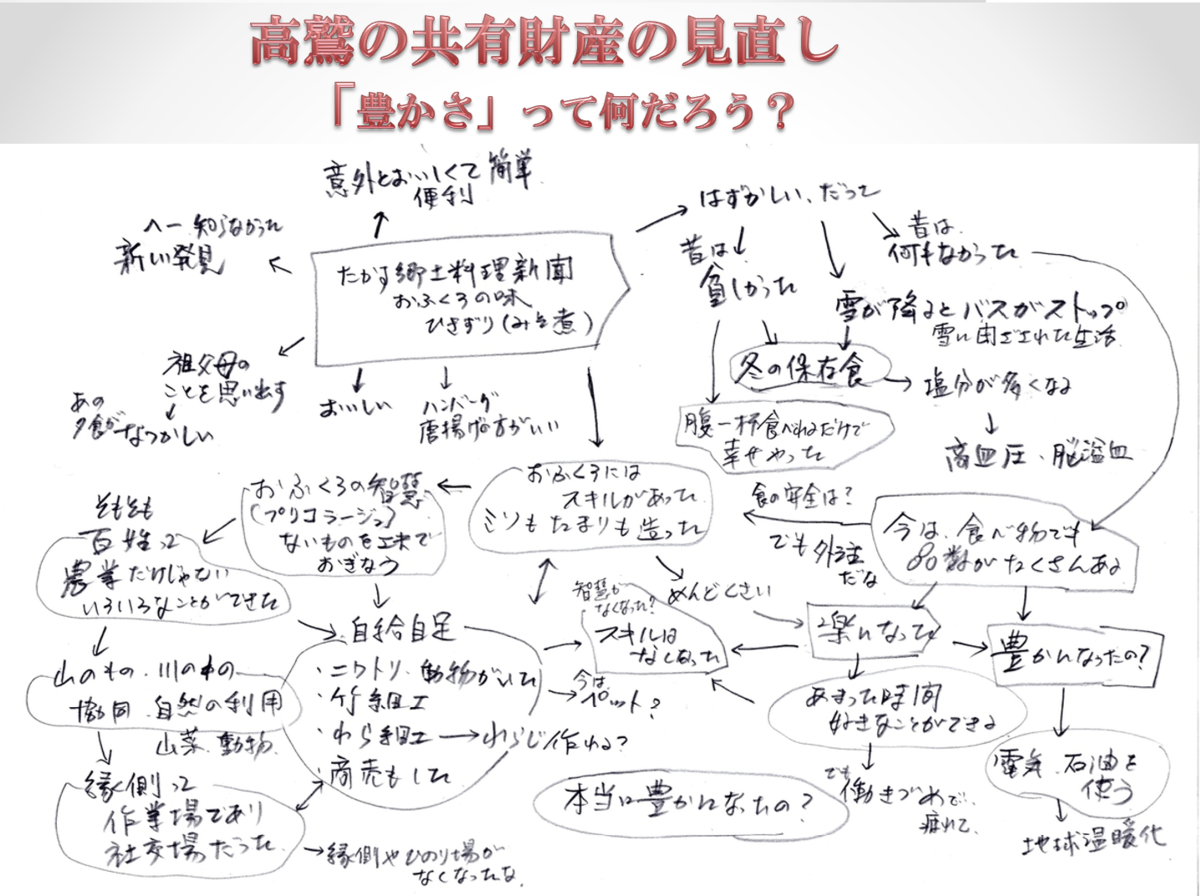 高鷲の共有財産の見直し
「豊かさ」って何だろう？
意外とおいしくて簡単
便利
へー知らなかった
新しい発見
たかす郷土料理新聞
おふくろの味
ひきずり(みそ煮)
祖父母の
ことを思い出す
あの
夕食が
なつかしい
おいしい
ハンバーグ
唐揚げの方がいい
はずかしい、だって
昔は
貧しかった
昔は
何もなかった
雪が降るとバスがストップ
雪に閉ざされた生活
冬の保存食
塩分が多くなる
高血圧、脳溢血
腹一杯食べれるだけで
幸せやった
おふくろには
スキルがあった
ミソもたまりも造った
おふくろの智慧
(ブリコラージュ)
ないものを工夫で
おぎなう
そもそも
百姓って
農業だけじゃない
いろいろなことができた
山のもの、川の中の
協同 自然の利用
山菜、動物
縁側って
作業場であり
社交場だった
縁側やひのり場が
なくなったな
自給自足
・ニワトリ、動物がいた
・竹細工
・わら細工
わらじ作れる?
・商売もした
今は
ペット?
智慧が
なくなった?
スキルは
なくなった
めんどくさい
食の安全は?
でも外注
だな
今は、食べ物でも
品数がたくさんある
楽になった
豊かになったの?
あまった時間
好きなことができる
でも
働きづめで、
疲れて、
電気、石油を
使う
地球温暖化
本当に豊かになったの?